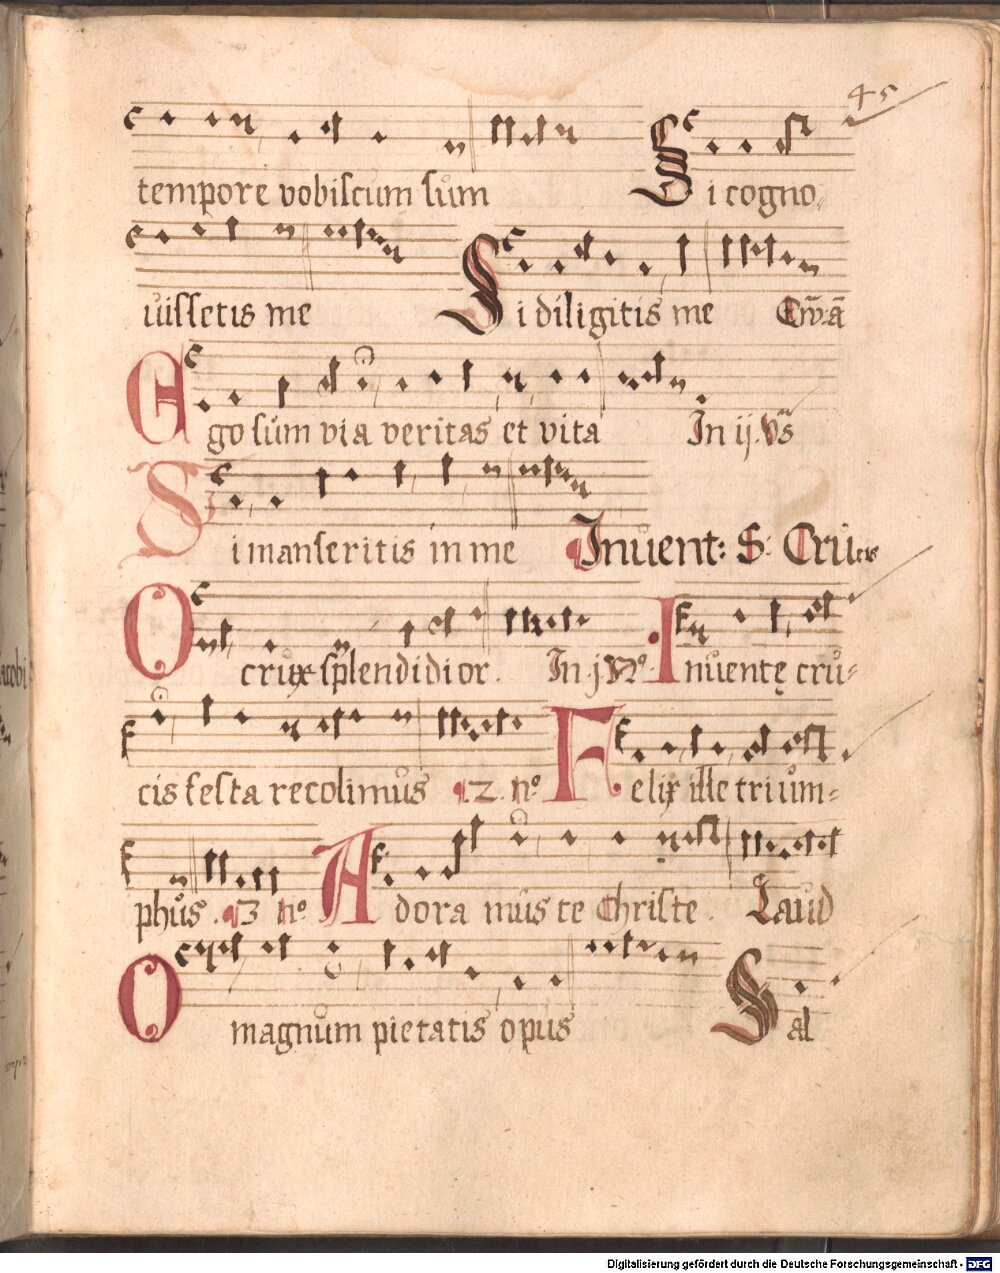 45
tempore vobiscum sum Si cogno
uissetis me Si diligitis me Ew̃ã
Ego sum via veritas et vita In ij. Vs̃
Si manseritis in me Inuent: S: Crucis
O crux splendidior. In j No. Inuentę cru-
cis festa recolimus 2. no. Felix ille trium-
phus. 3 no. Adoramus te Christe. Laud
O magnum pietatis opus Sal
Digitalisierung gefördert durch die Deutsche Forschungsgemeinschaft - DFG